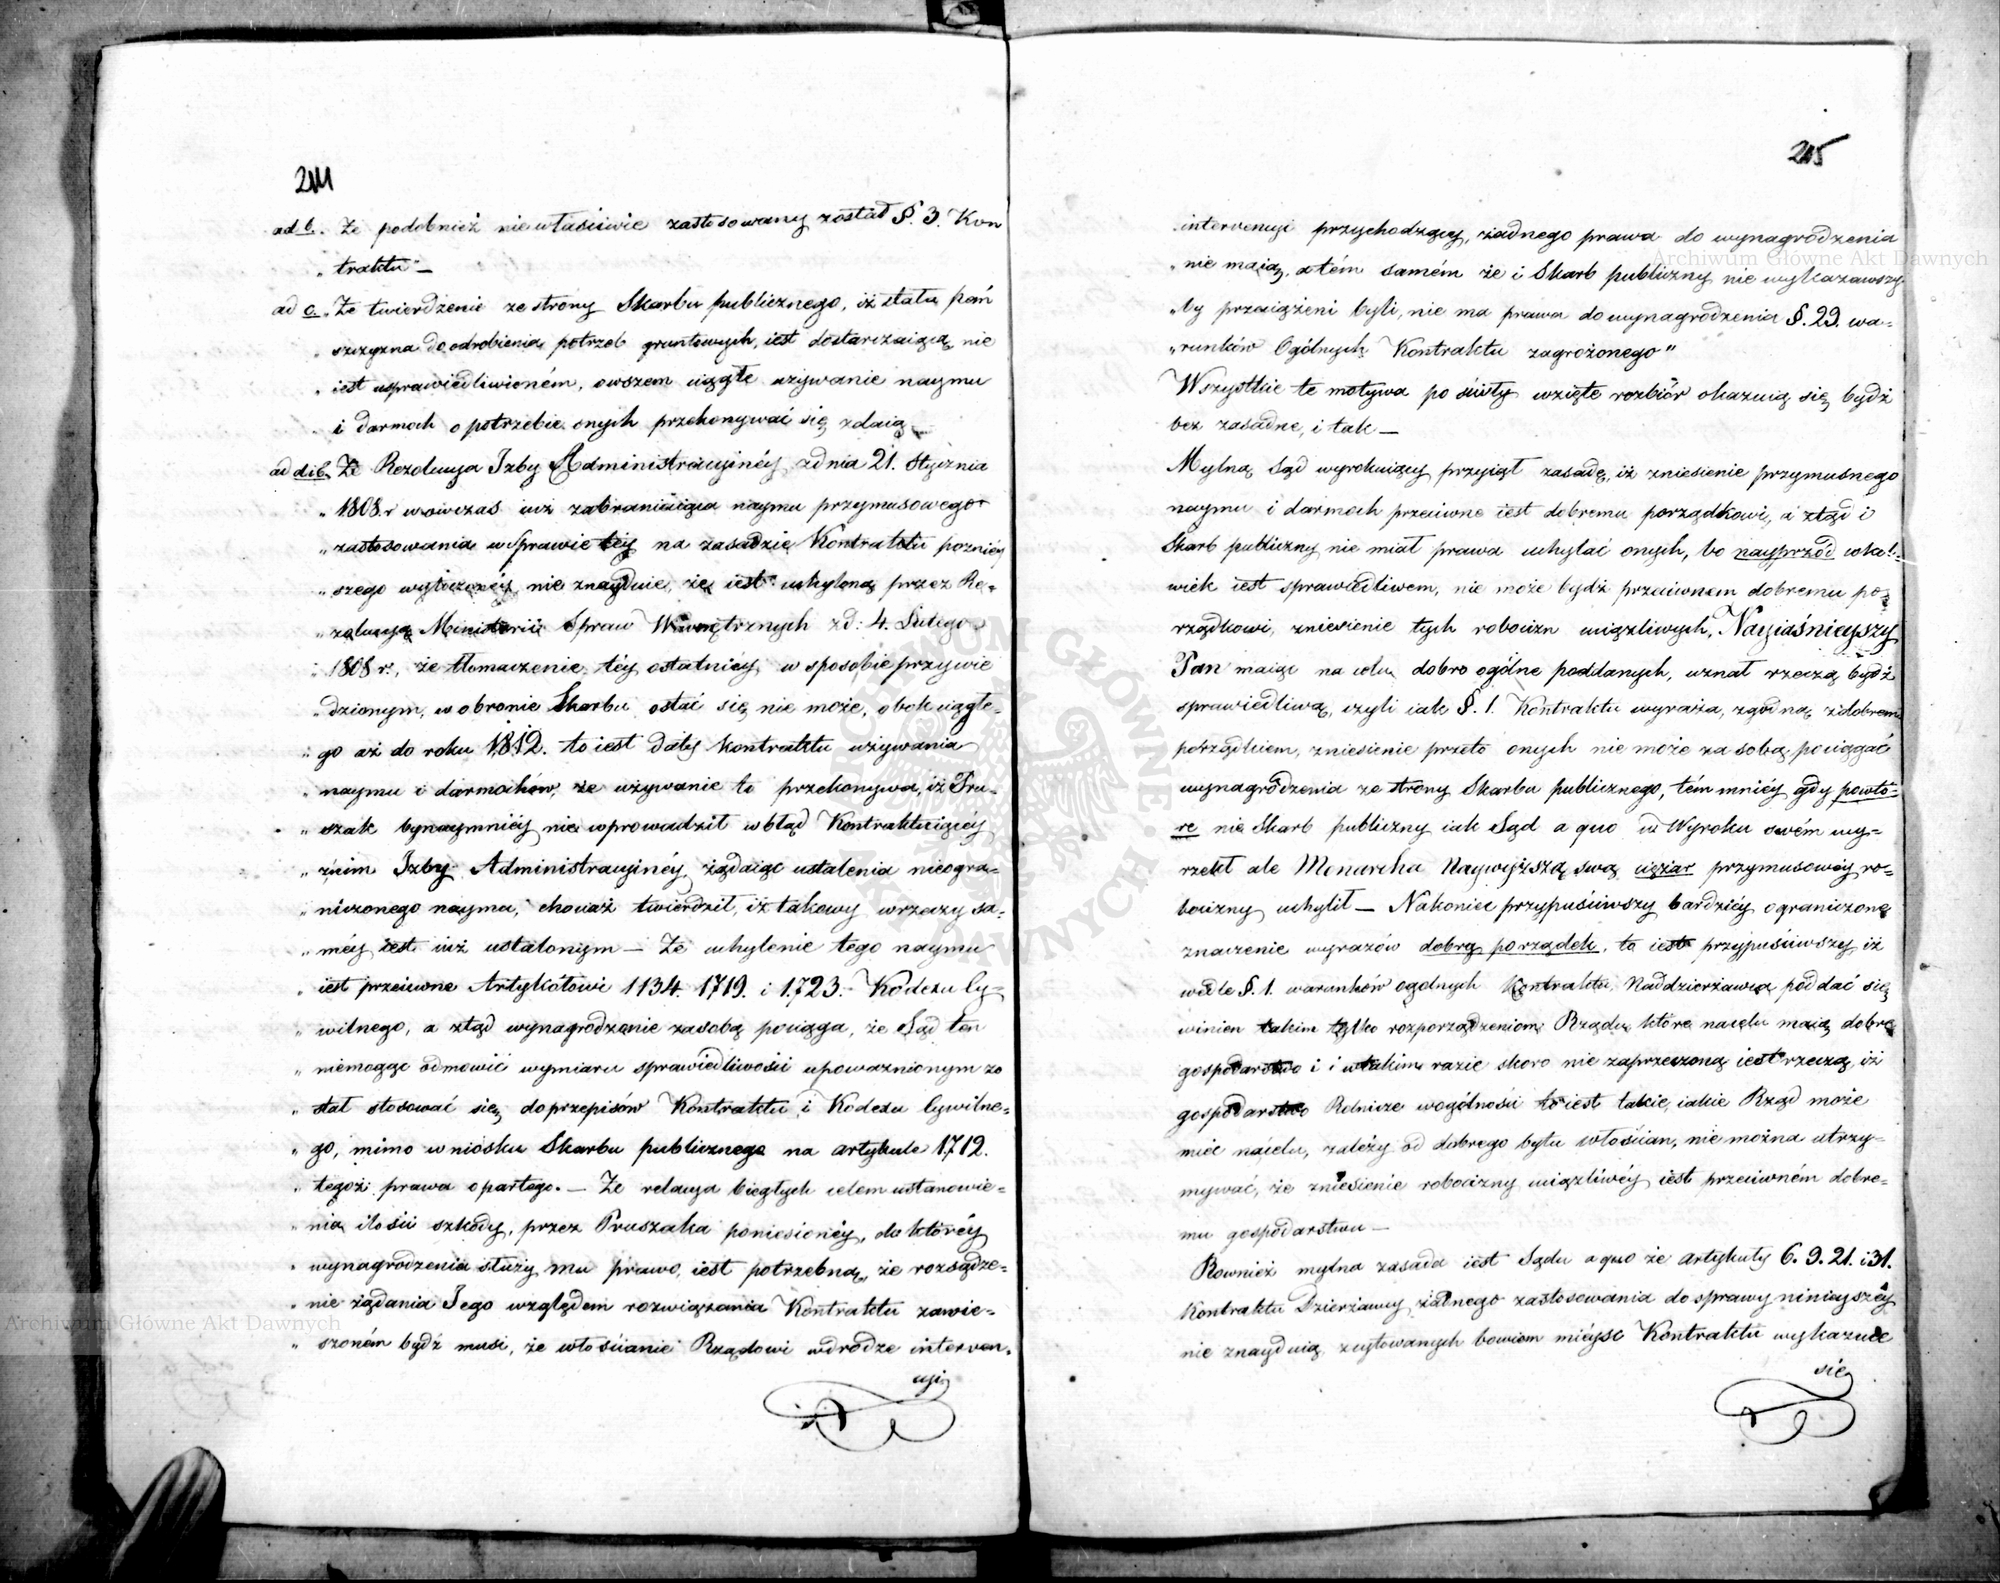 211
ad b. Że podobnież niewłaściwie zastosowany został §. 3. Kon
„traktu" —
ad c. „Że twierdzenie ze strony Skarbu publicznego, iż stała pań
„szczyzna do odrobienia potrzeb gruntowych, iest dostarczaiącą nie
„iest usprawiedliwioném, owszem ciągłe używanie naymu
„i darmoch o potrzebie onych przekonywać się zdaią —
ad d i b. Że Rezolucya Izby Administracyinéy z dnia 21. Stycznia
„1808. r wówczas iuż zabraniaiąca naymu przymusowego
„zastosowania w Sprawie téy na zasadzie Kontraktu poźniéy
„szego wytoczonéy nie znayduie, że iest uchyloną przez Re-
„zolucyą Ministerii Spraw Wewnętrznych z d: 4. Lutego
„1808 r., że tłomaczenie téy ostatniéy w sposobie przywie
„dzionym, w obronie Skarbu ostać się nie może, obok ciągłe-
„go aż do roku 1812. to iest daty kontraktu używania
„naymu i darmochów, że używanie to przekonywa, iż Pru-
„szak bynaymniéy nie wprowadził w błąd Kontraktuiącéy
„z nim Izby Administracyinéy, żądaiąc ustalenia nieogra-
„niczonego naymu, chociaż twierdził, iż takowy w rzeczy sa-
„méy iest iuż ustalonym — Że uchylenie tego naymu
„iest przeciwne Artykółowi 1134. 1719. i 1723. Kodexu Cy-
„wilnego, a ztąd wynagrodzenie zasobą pociąga, że Sąd ten
„niemogąc odmowić wymiaru sprawiedliwości upoważnionym zo
„stał stosować się do przepisów Kontraktu i Kodexu Cywilne-
„go, mimo wniosku Skarbu publicznego na artykule 1712.
„tegoż prawa opartego. — Że relacya biegłych celem ustanowie-
„nia ilości szkody, przez Pruszaka poniesionéy, do któréy
„wynagrodzenia służy mu prawo, iest potrzebną, że rozsądze-
„nie żądania Jego względem rozwiązania Kontraktu zawie-
„szoném bydź musi, że włościanie Rządowi w drodze interwen-
cyi
215
interwencyi przychodzący, żadnego prawa do wynagrodzenia
„nie maią, a tém samém że i Skarb publiczny nie wykazawszy
„by przeciążeni byli, nie ma prawa do wynagrodzenia §. 29. wa-
„runków Ogólnych Kontraktu zagrożonego"
Wszystkie te motywa po ścisły wzięte rozbiór okazuią się bydź
bez zasadne, i tak —
Mylną Sąd wyrokuiący przyiął zasadę, iż zniesienie przymusnego
naymu i darmoch przeciwne iest dobremu porządkowi, a ztąd i
Skarb publiczny nie miał prawa uchylać onych, bo nayprzód cokol-
wiek iest sprawiedliwem, nie może bydź przeciwnem dobremu po-
rządkowi, zniesienie tych robocizn uciążliwych, Nayiaśnieyszy
Pan maiąc na celu dobro ogólne poddanych, uznał rzeczą bydź
sprawiedliwą, czyli iak §. 1. Kontraktu wyraża, zgodną z dobrem
porządkiem, zniesienie przeto onych nie może za sobą pociągać
wynagrodzenia ze strony Skarbu publicznego, tém mniéy gdy powtó-
re nie Skarb publiczny iak Sąd a quo w Wyroku swém wy-
rzekł ale Monarcha Naywyższą swą ciężar przymusowéy ro-
bocizny uchylił — Nakoniec przypuściwszy bardziéy ograniczone
znaczenie wyrazów dobry porządek, to iest przypuściwszy iż
wedle §. 1. warunków ogolnych Kontraktu Naddzierżawca poddać się
winien takim tylko rozporządzeniom Rządu, które na celu maią dobre
gospodarstwo i i w takim razie skoro nie zaprzeczoną iest rzeczą, iż
gospodarstwo Rolnicze w ogólności to iest takie, iakie Rząd może
mieć na celu, zależy od dobrego bytu włościan, nie można utrzy-
mywać, że zniesienie robocizny uciążliwéy iest przeciwném dobre-
mu gospodarstwu —
Rownież mylna zasada iest Sądu a quo że artykuły 6. 9. 21. i 31.
Kontraktu Dzierżawcy żadnego zastosowania do sprawy niniéyszéy
nie znayduią zcytowanych bowiem mieysc Kontraktu wykazuie
się